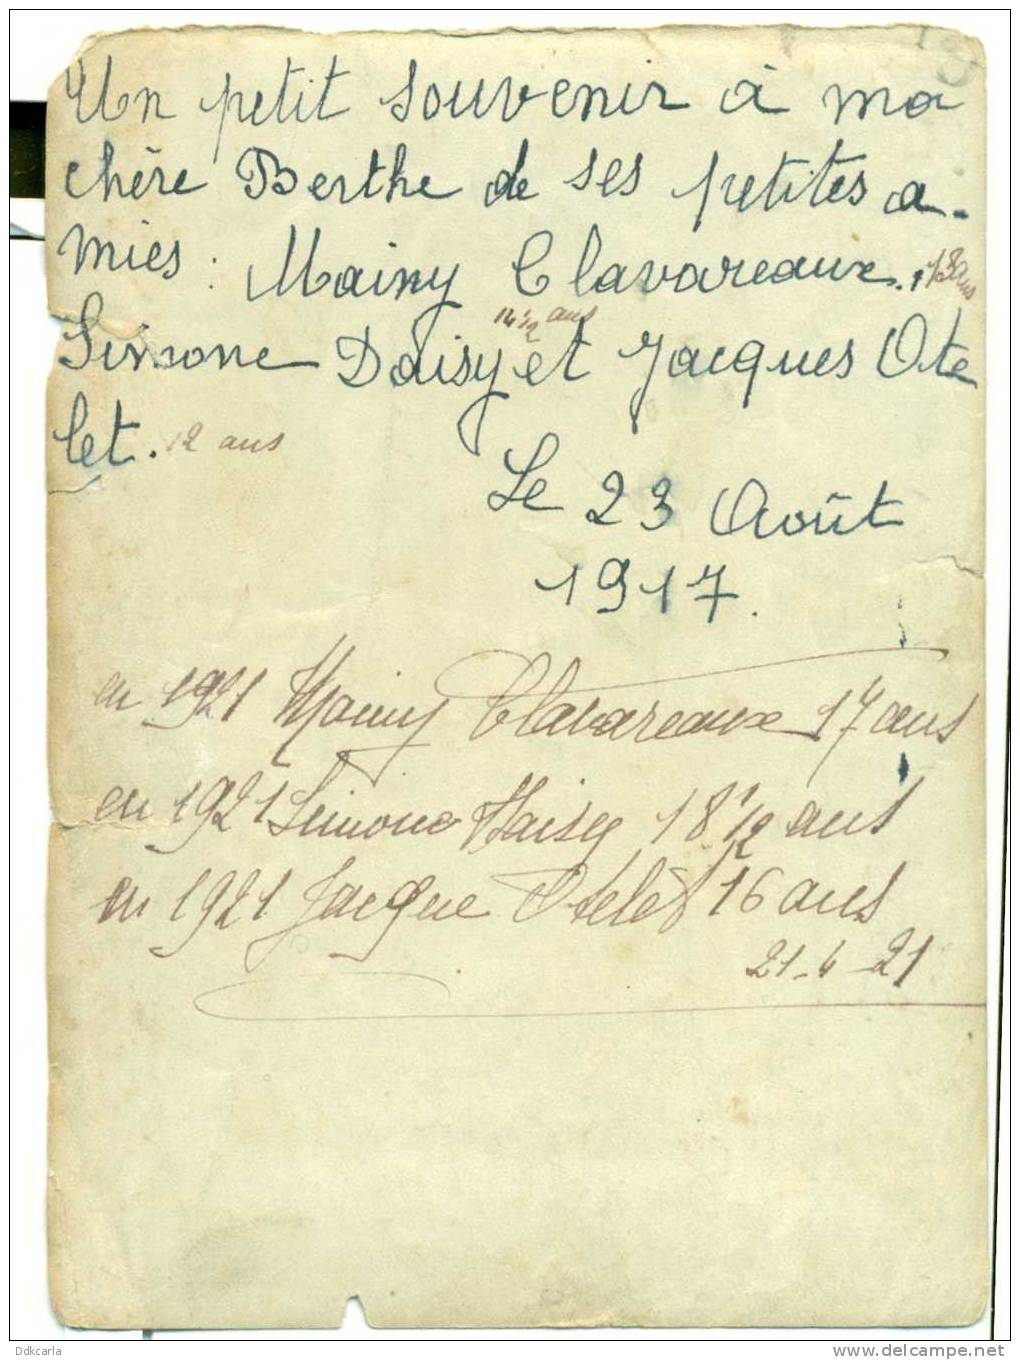 Un petit souvenir à ma
chère Berthe de ses petites a-
mies : Mainy Clavareaux, 13 ans
14 1/2 ans
Simone Daisy et Jacques Ote
let. 12 ans
Le 23 Août
1917.
en 1921 Mainy Clavareaux 17 ans
en 1921 Simone Daisy 18 1/2 ans
en 1921 Jacque Otelet 16 ans
21-4-21
Ddkarla
www.delcampe.net